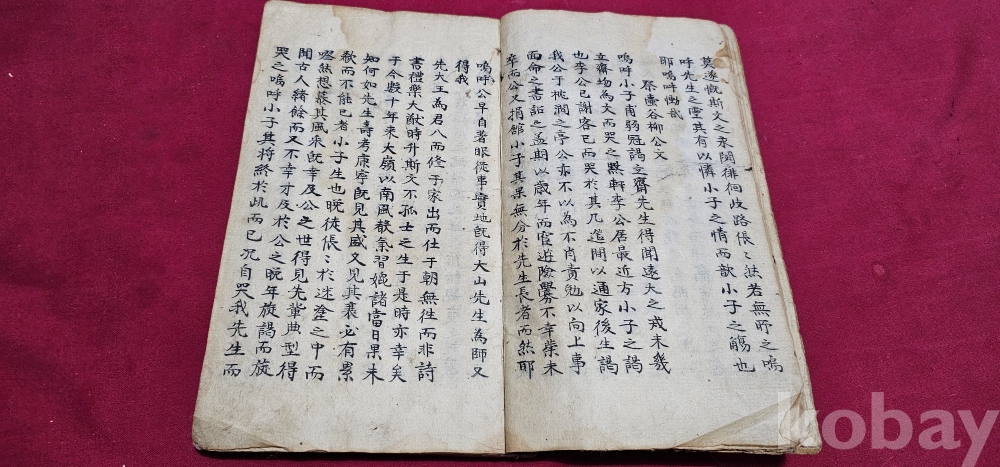 莫遂慨斯文之永閟徘徊歧路倀〻然若無所之嗚
呼先生之靈其有以憐小子之情而歆小子之觴也
耶嗚呼慟哉
祭壼谷柳公文
嗚呼小子甫弱冠謁立齋先生得聞遠大之戒未幾
立齋均為文而哭之黙軒李公居最近方小子之謁
也李公已謝客已而哭於其几筵間以通家後生謁
我公于桃澗之亭公亦不以為不肖責勉以向上事
面命之書詔之孟期以歲年而慢遊險釁不幸榮未
卒而公又捐舘小子其果無分於先生長者而然耶
嗚呼公早自著眼從事實地旣得大山先生為師又
得我
先大王為君入而修于家出而仕于朝無徃而非詩
書禮樂大猷時升斯文不孤士之生于是時亦幸矣
于今數十年來大嶺以南風聲氣習媲諸當日果未
知何如先生壽考康寧旣見其盛又見其衰必有累
欷而不能已者小子生也晚徒倀〻於迷塗之中而
喟然想慕其風來旣幸及公之世得見先輩典型得
聞古人緖餘而又不幸才及於公之晩年旋謁而旋
哭之嗚呼小子其將終於此而已況自哭我先生而
kobay